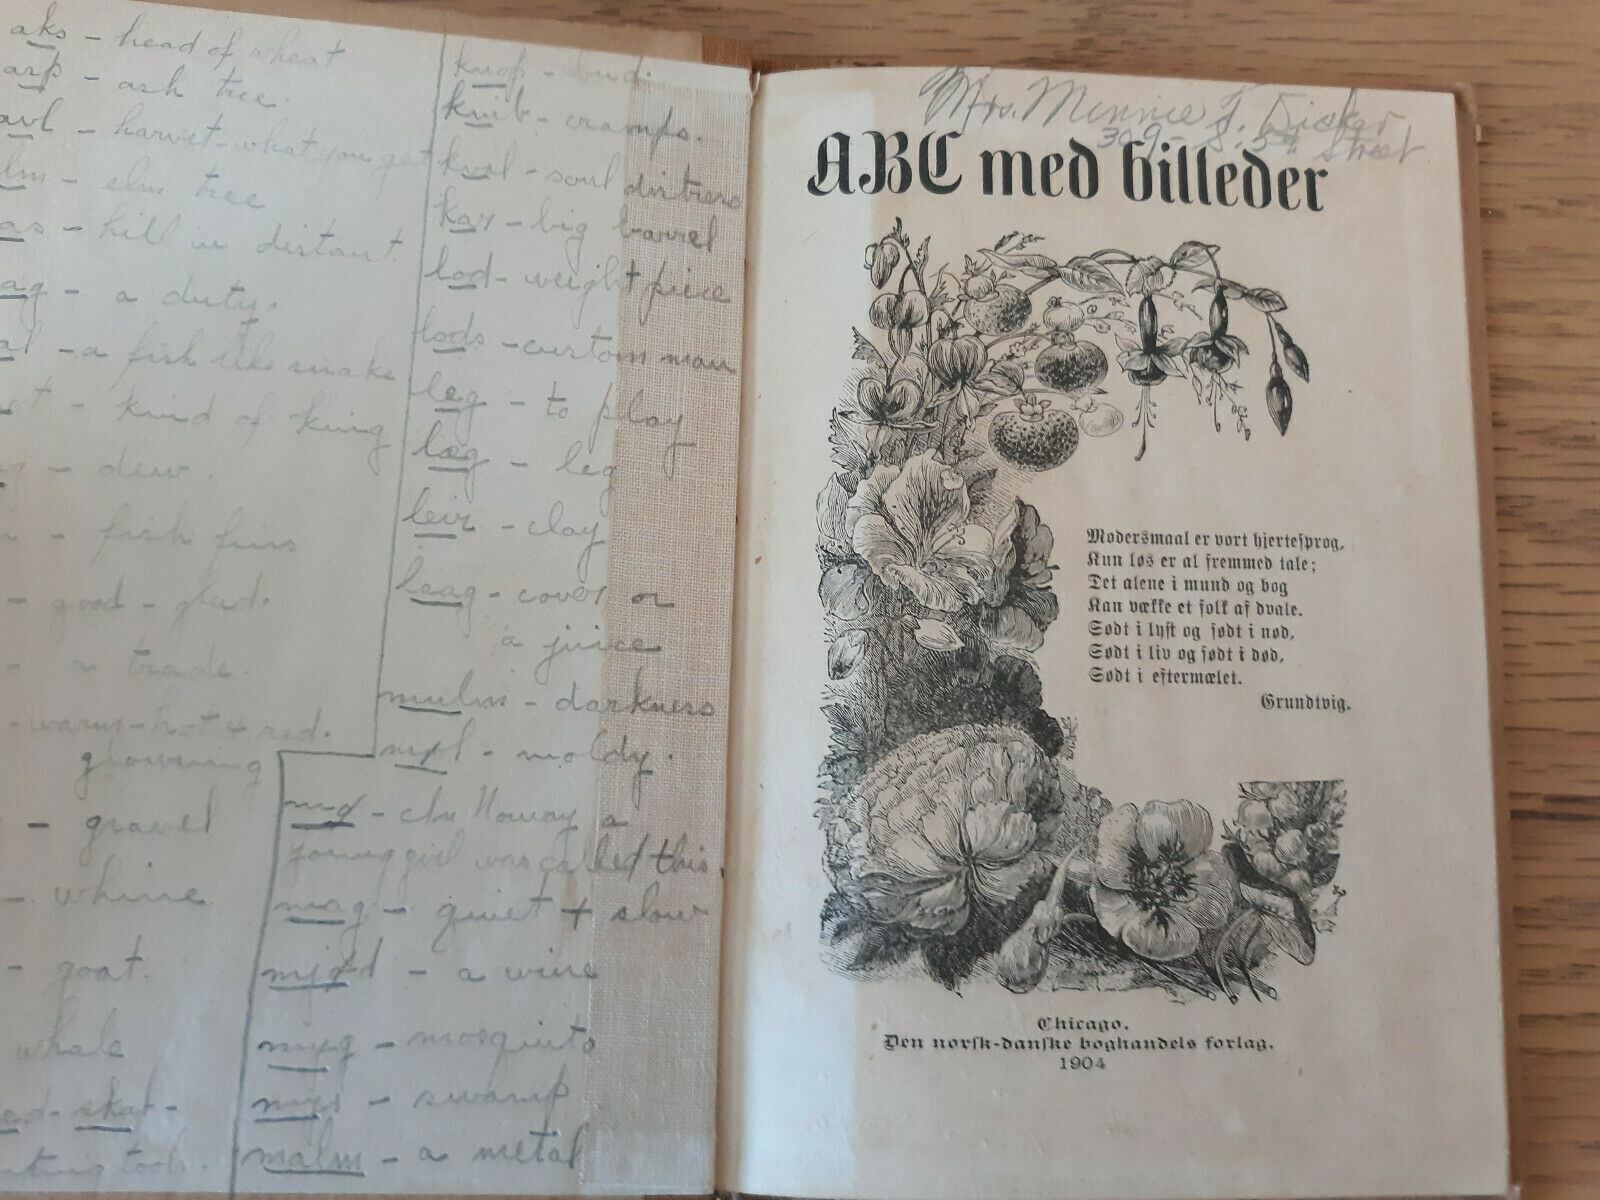 aks - head of wheat
ash tree.
- harvet - what you get
- elm tree
- hill in distant
- a duty.
- a fish like snake
- kind of king
- dew.
- fish fins
- good - glad.
- a trade.
- warm - hot + red.
glowing
- gravel
- whine
- goat.
whale
skat -
tools.
knop - bud.
knib - cramps.
kval - soul distress
kar - big barrel
lod - weight piece
lods - custom man
leg - to play
læg - leg
leir - clay
laag - cover or
a juice
mulm - darkness
- moldy.
mø - In Norway a
young girl was called this.
mag - quiet + slow
mjød - a wine
myg - mosquito
myr - swamp
malm - a metal
Mrs. Minnie
309 - S. 5th Street
ABC med billeder
Modersmaal er vort hjertesprog,
Kun løs er al fremmed tale;
Det alene i mund og bog
Kan vække et folk af dvale.
Sødt i lyst og sødt i nød,
Sødt i liv og sødt i død,
Sødt i eftermælet.
Grundtvig.
Chicago.
Den norsk-danske boghandels forlag.
1904